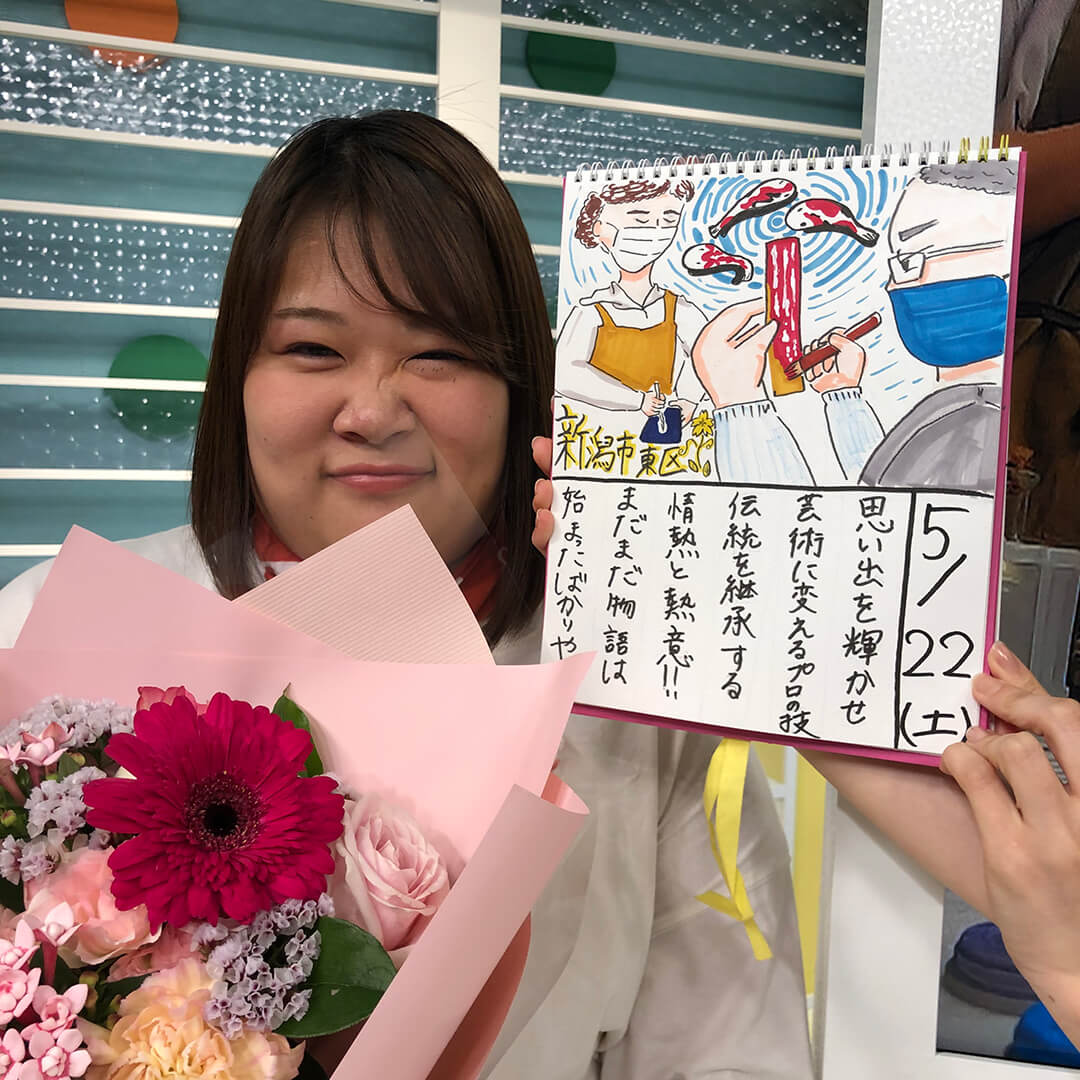 新潟市東区
5/22(土)
思い出を輝かせ
芸術に変えるプロの技
伝統を継承する
情熱と熱意!!
まだまだ物語は
始まったばかりや